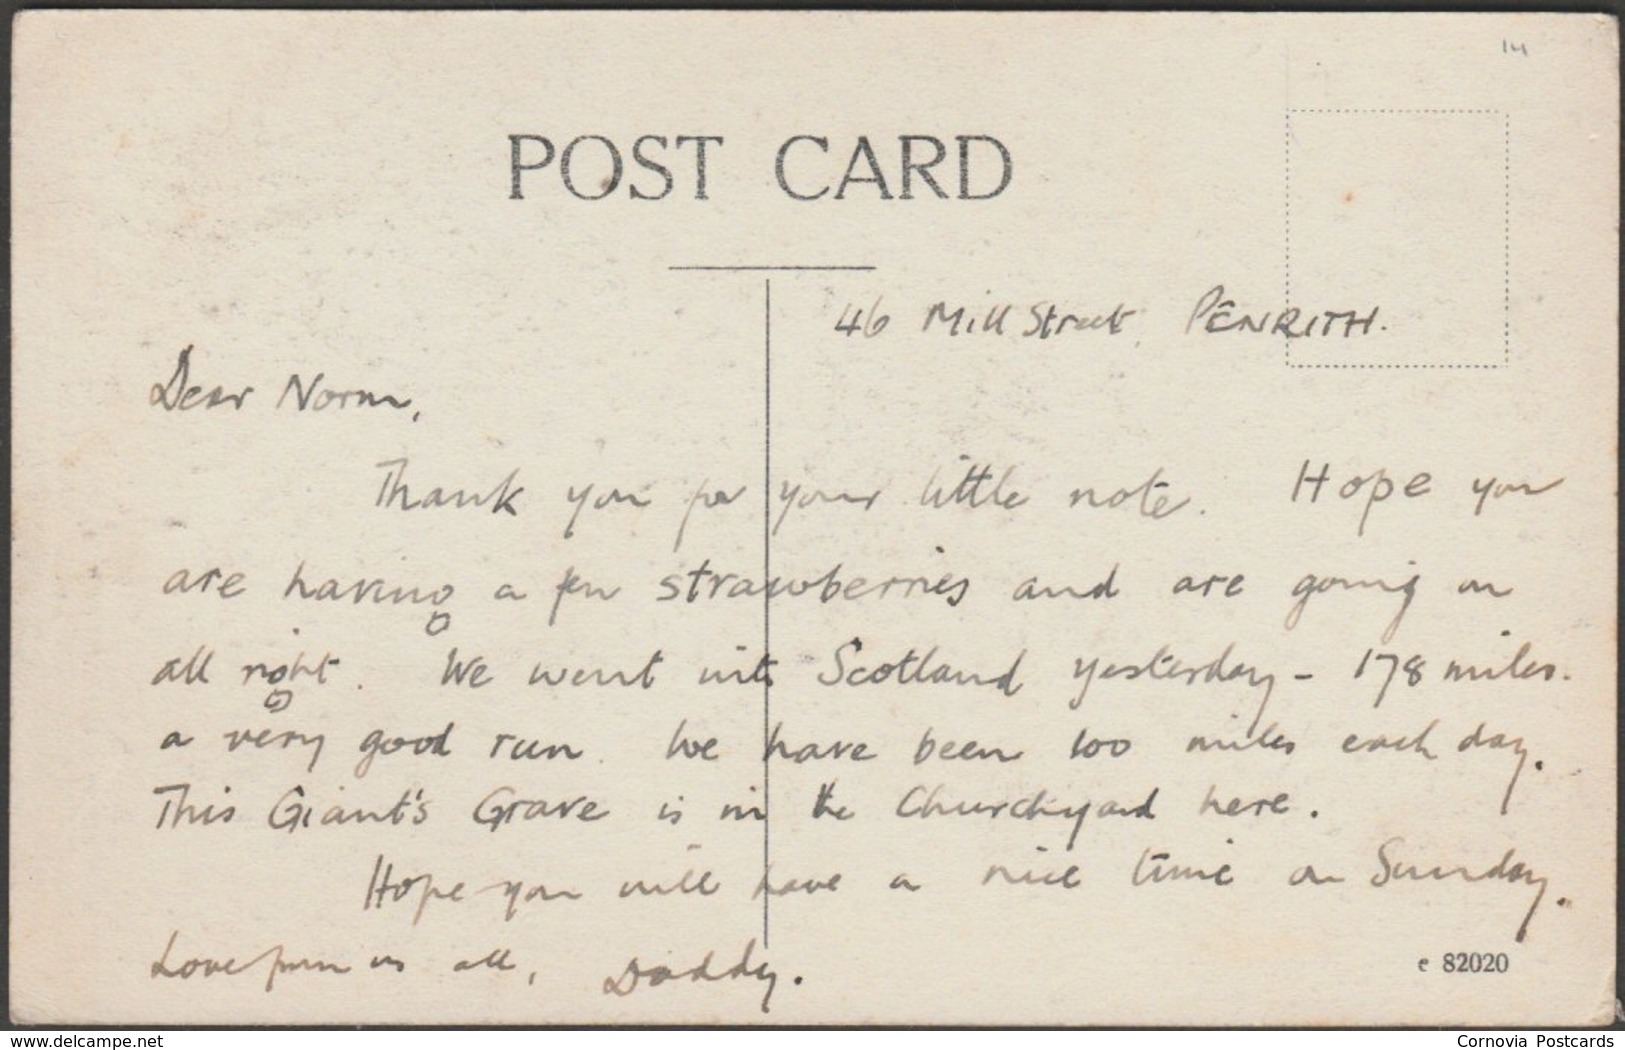 14
POST CARD
46 Mill Street, PENRITH.
Dear Norm,
Thank you for your little note. Hope you
are having a few strawberries and are going on
all right. We went into Scotland yesterday - 178 miles.
a very good run. We have been 100 miles each day.
This Giant's Grave is in the Churchyard here.
Hope you will have a nice time on Sunday.
Love from us all, Daddy.
e 82020
www.delcampe.net
Cornovia Postcards